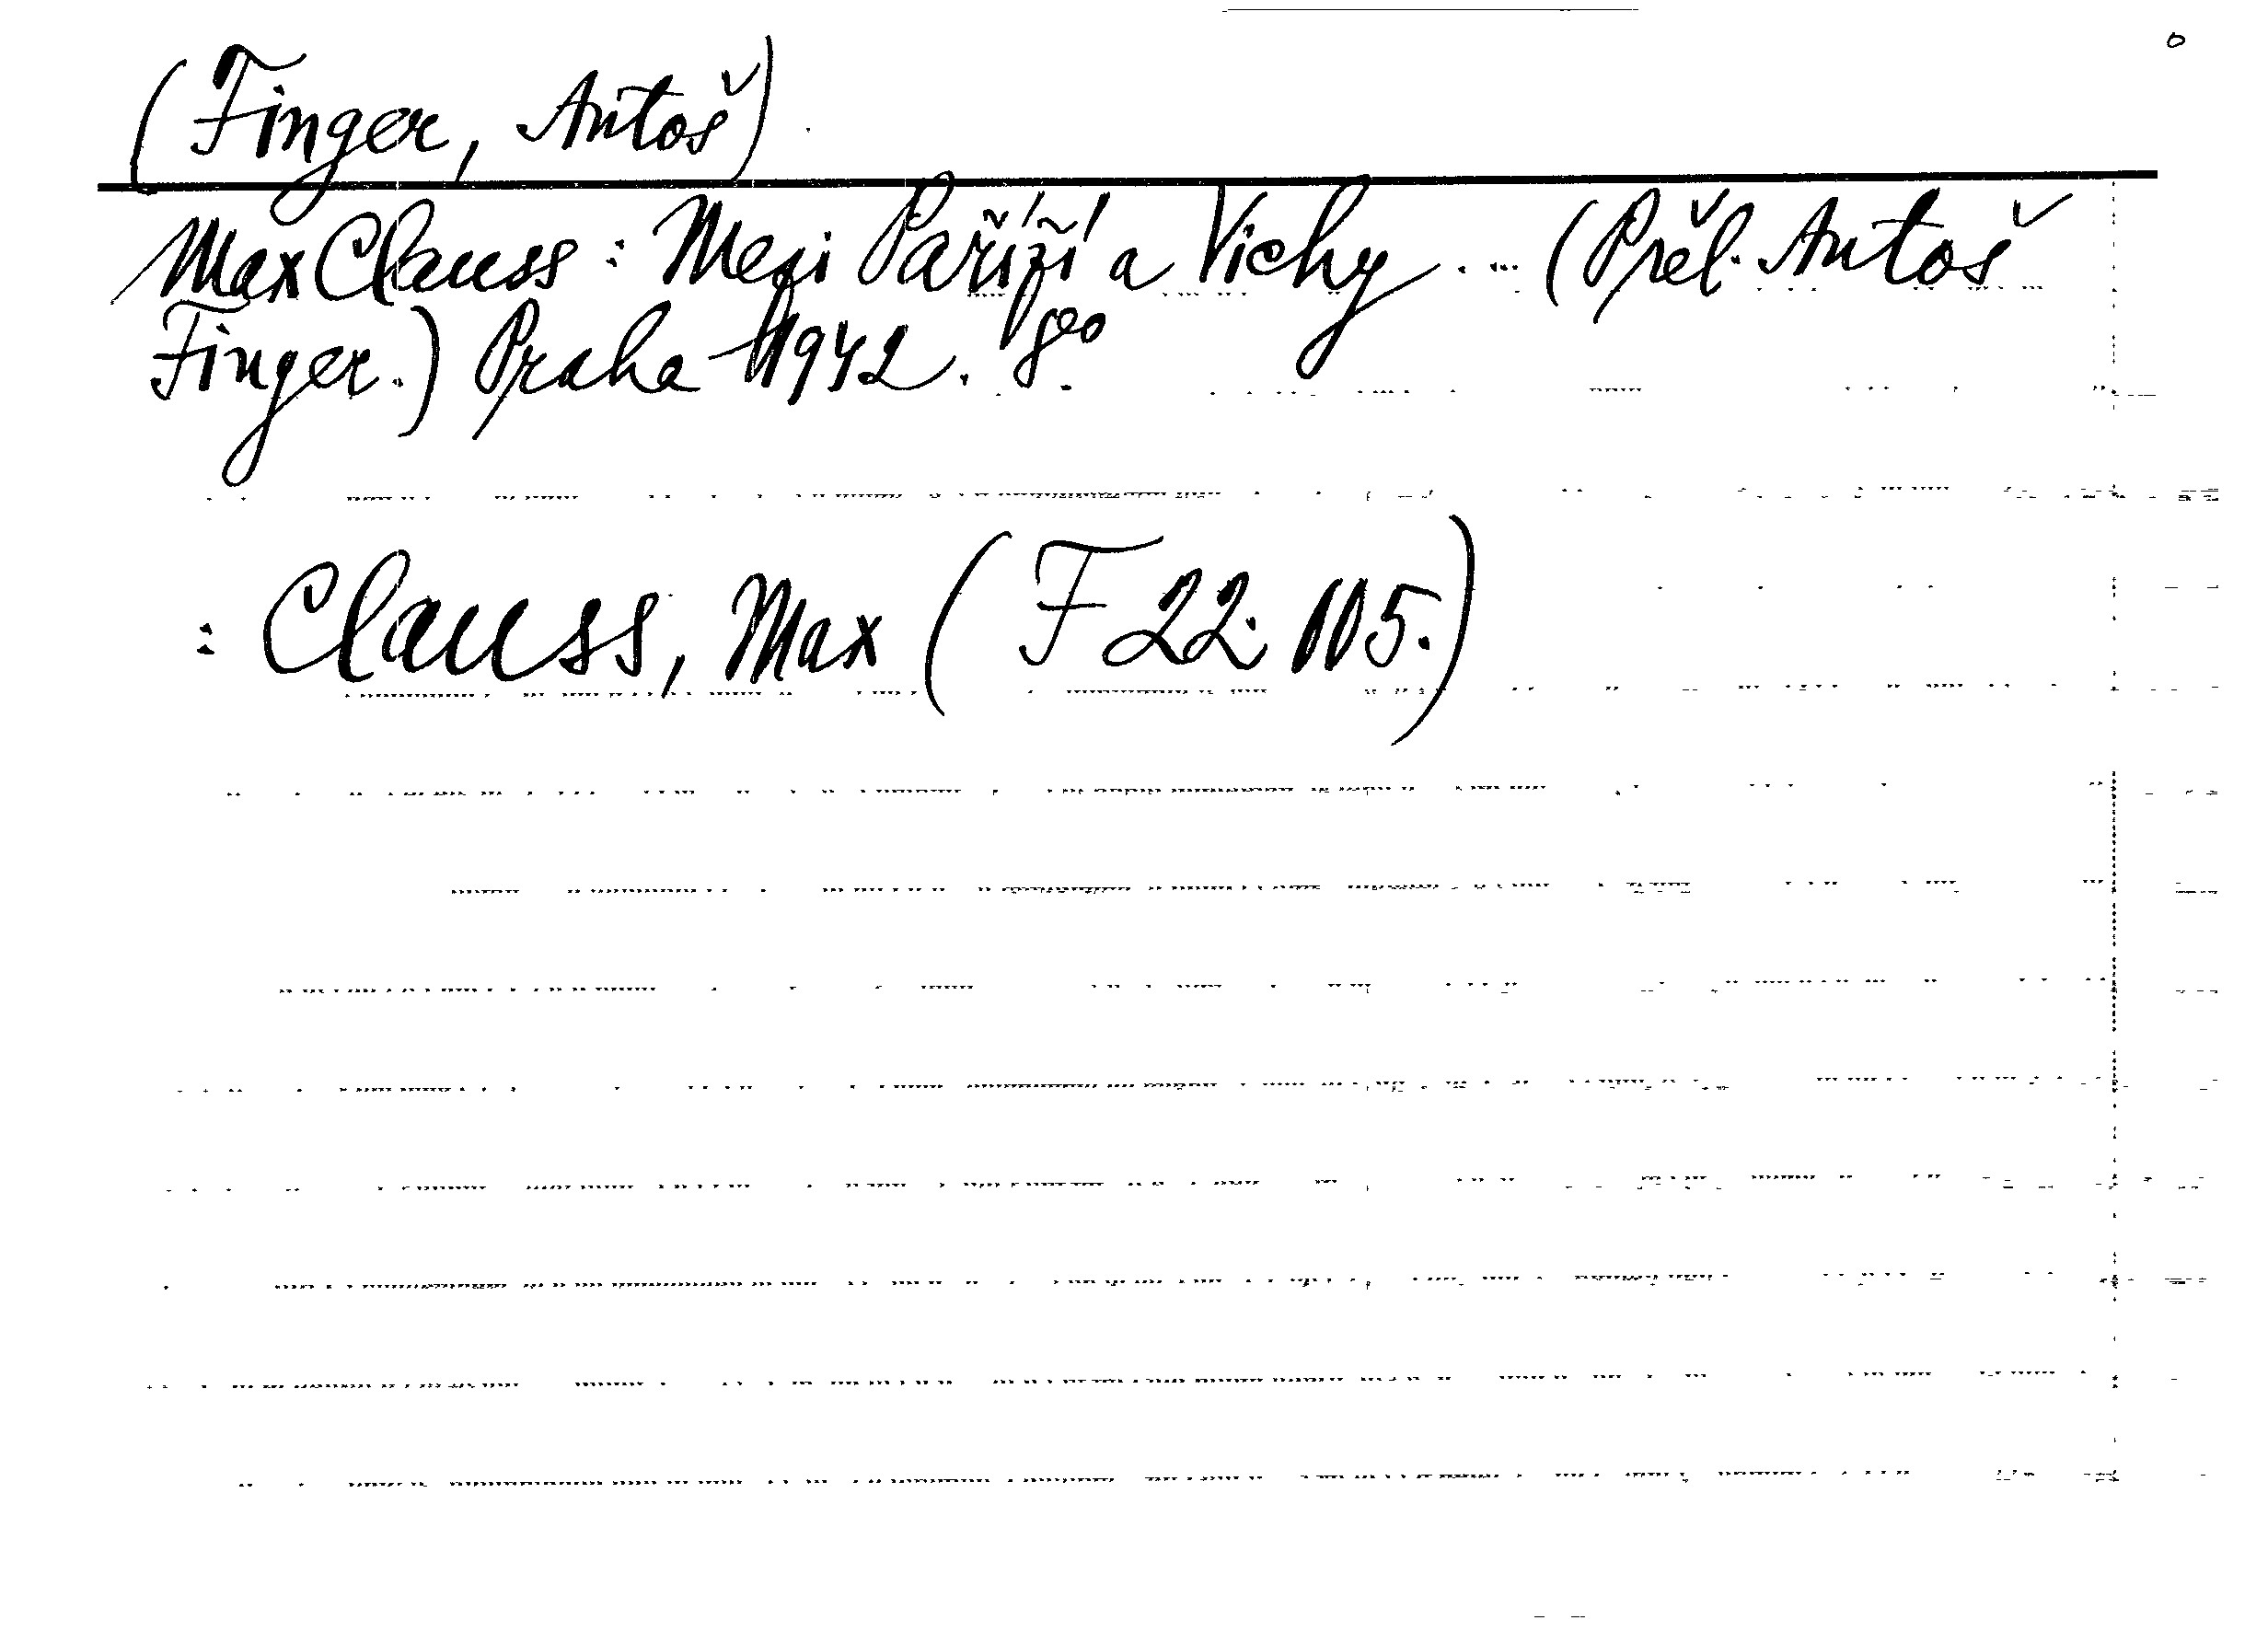 (Finger, Antoš)
Max Clauss: Mezi Paříží a Vichy. ... (Přel. Antoš
Finger.) Praha 1942. 8°
: Clauss, Max (F 22.105.)